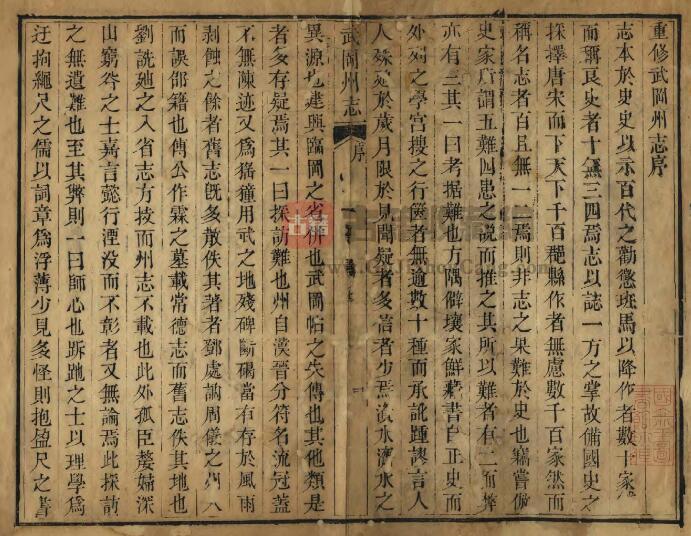 重修武岡州志序
志本於史史以示百代之勸懲班馬以降作者數十家
而稱良史者十無三四焉志以誌一方之掌故備國史之
採擇唐宋而下天下千百郡縣作者無慮數千百家然而
稱名志者百且無一二焉則非志之果難於史也竊嘗倣
史家所謂五難四患之說而推之其所以難者有二而弊
亦有三其一曰考据難也方隅僻壤家鮮藏書自正史而
外列之學宫搜之行篋者無逾數十種而承訛踵謬言人
人殊處於歲月限於見聞疑者多信者少焉濱水濟水之
武岡州志
序
一
異源也建興臨岡之省併也武岡帖之失傳也其他類是
者多存疑焉其一曰採訪難也州自漢晉分符名流冠蓋
不無陳迹又爲猺獞用武之地殘碑斷碣當有存於風雨
剥蝕之餘者舊志旣多散佚其著者鄧處訥周儀之
而誤邵籍也傅公作霖之墓載常德志而舊志佚其地也
劉說
之入省志方技而州志不載也此外孤臣嫠婦深
山窮谷之士嘉言懿行湮没而不彰者又無論焉此採訪
之無遺難也至其弊則一曰師心也跅跎之士以理學爲
迂拘繩尺之儒以詞章爲浮薄少見多怪則抱盈尺之書